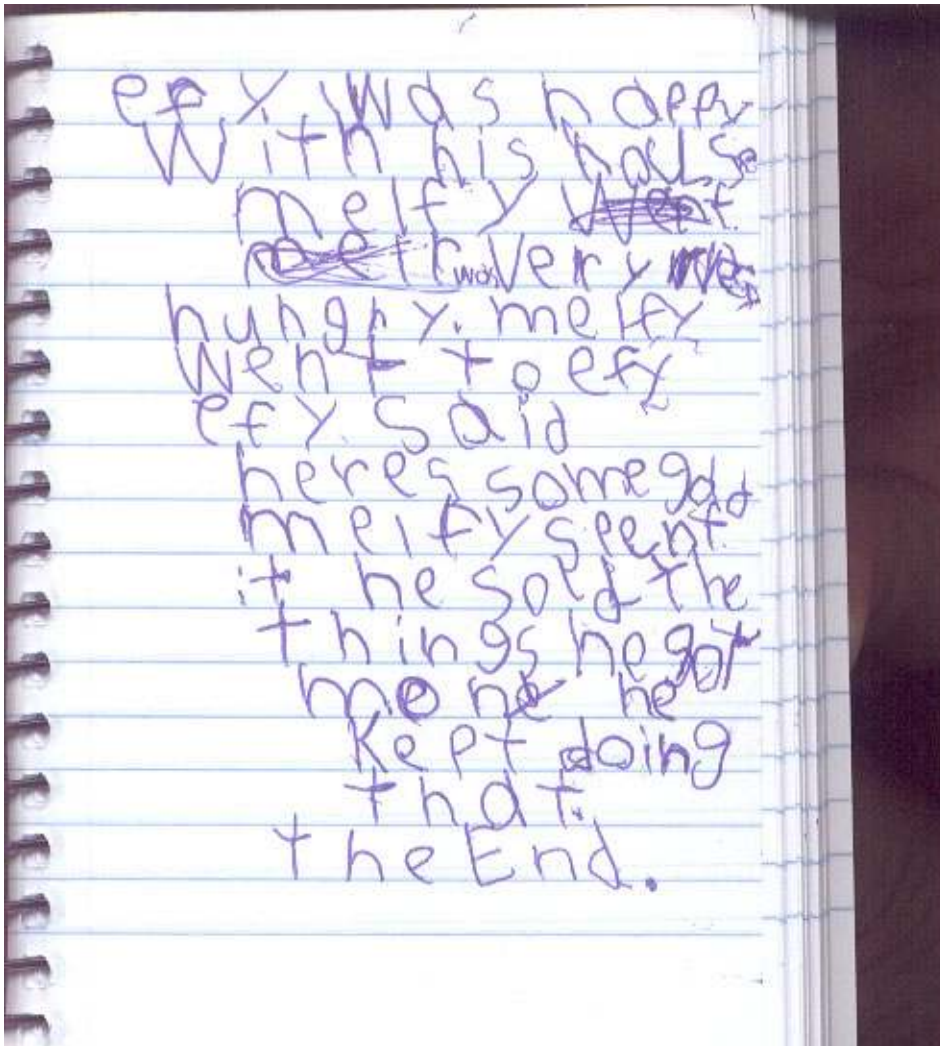 efy was happy
With his house
melfy
was very
hungry. melfy
Went to efy
efy. Said
heres some gold
melfy spent
it he sold the
things he got
mone he
Kept doing
that.
the End.